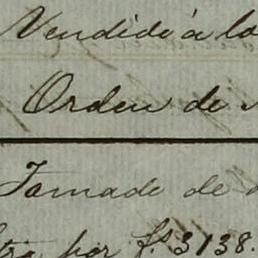 Vendido á lo
Orden de
Tomado de
por fs. 3138.